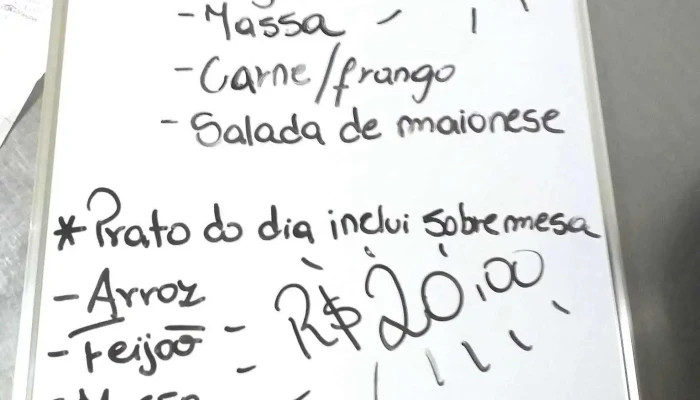 - Massa
- Carne/frango
- Salada de maionese
* Prato do dia inclui sobremesa
- Arroz
- Feijão
R$ 20,00